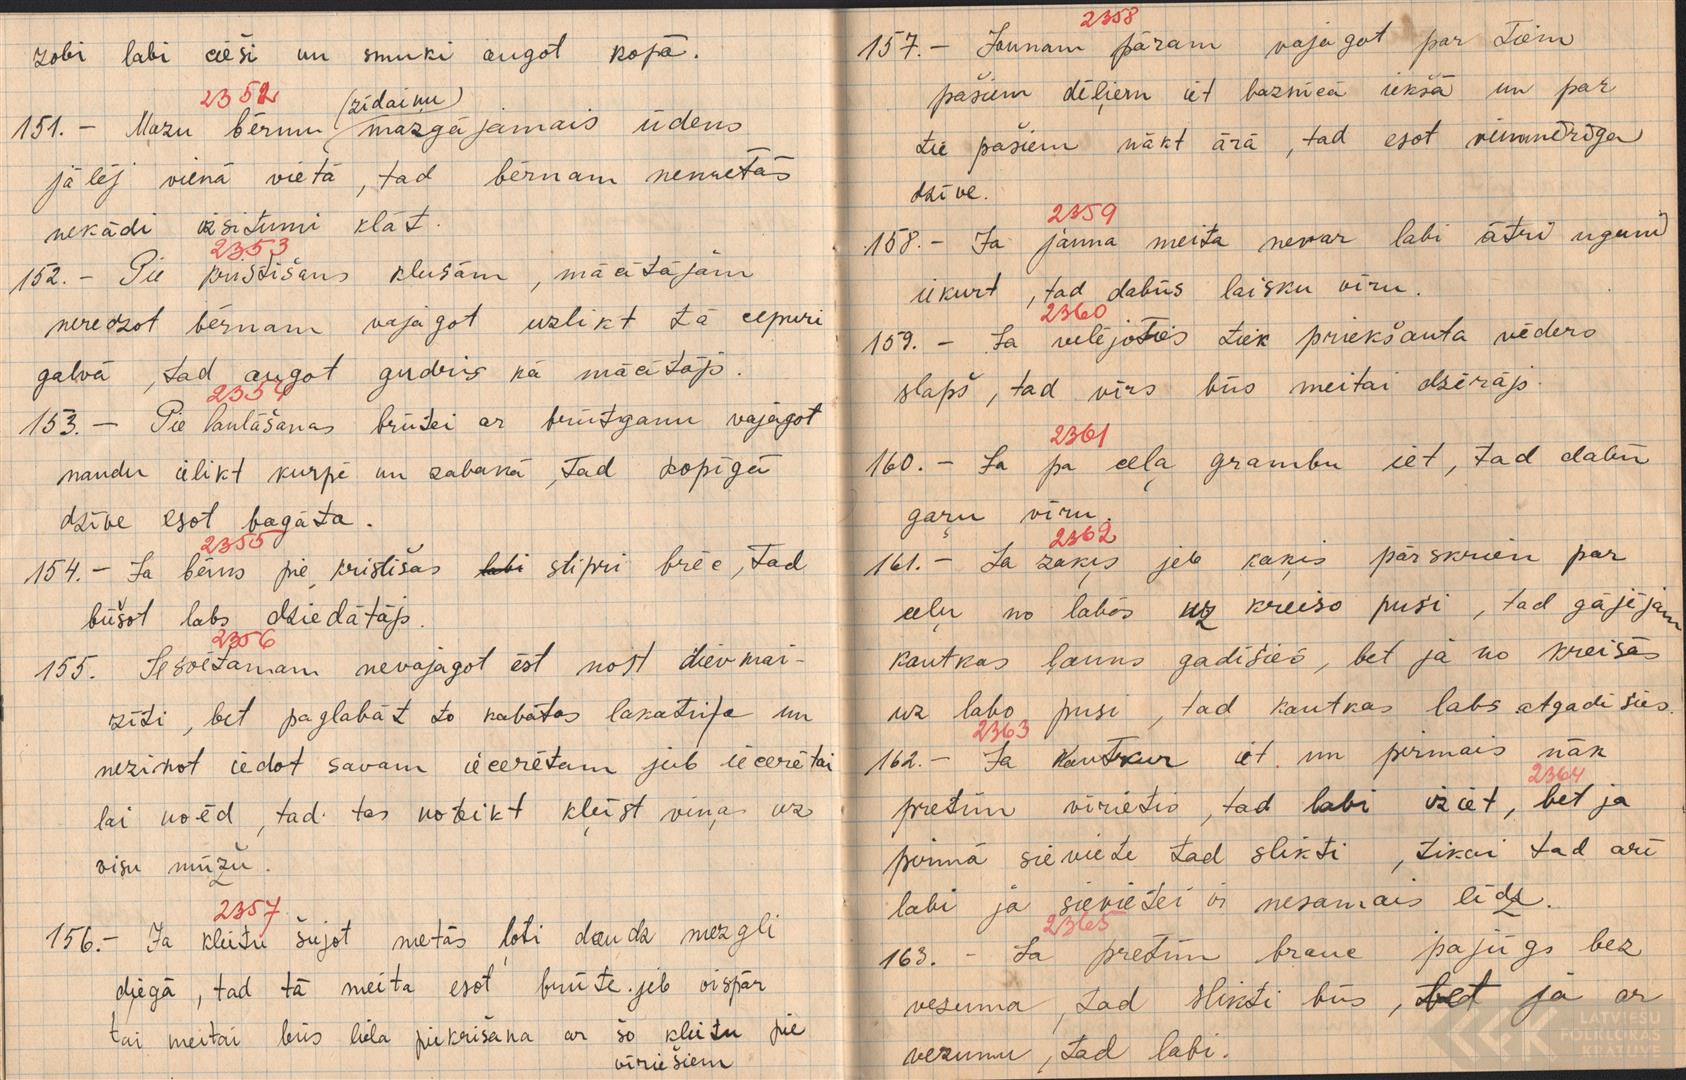 zobi labi cieši un smuki augot kopā.
2352
(zīdaiņu)
151. – Mazu bērnu mazgājamais ūdens
jālej vienā vietā, tad bērnam nemetās
nekādi izsitumi klāt.
2353
152. – Pie kristīšans klusām, mācītājam
neredzot bērnam vajagot uzlikt tā cepuri
galvā, tad augot gudris kā mācītājs.
2354
153. – Pie laulāšanas brūtei ar brūtganu vajagot
naudu ielikt kurpē un zābakā, tad kopīgā
dzīve esot bagāta.
2355
154. – Ja bērns pie kristīšas labi stipri brēc, tad
būšot labs dziedātājs.
2356
155. Iesvētamam nevajagot ēst nost dievmai-
zīti, bet paglabāt to kabatas lakatiņā un
nezinot iedot savam iecerētam jeb iecerētai
lai noēd, tad tas noteikt kļūst viņas uz
visu mūžu.
2357
156. – Ja kleitu šujot metās ļoti daudz mezgli
diegā, tad tā meita esot brūte jeb vispār
tai meitai būs liela piekrišana ar šo kleitu pie
vīriešiem
2358
157. – Jaunam pāram vajagot par tiem
pašiem dēļiem iet baznīcā iekšā un par
tie pašiem nākt ārā, tad esot vienmērīga
dzīve.
2359
158. – Ja jauna meita nevar labi ātri uguni
iekurt, tad dabūs laisku vīru.
2360
159. – Ja velējoties tiek priekšauta vēders
slapš, tad vīrs būs meitai dzērājs.
2361
160. – Ja pa ceļa grambu iet, tad dabū
gaŗu vīru.
2362
161. – Ja zaķis jeb kaķis pārskrien par
ceļu no labās uz kreiso pusi, tad gājējam
kautkas ļauns gadīsies, bet ja no kreisās
uz labo pusi, tad kautkas labs atgadīsies.
2363
162. – Ja kautkur iet un pirmais nāk
2364
pretim vīrietis, tad labi iziet, bet ja
pirmā sieviete tad slikti, tikai tad arī
labi ja sievietei ir nesamais līdz.
2365
163. – Ja pretim brauc pajūgs bez
vezuma, tad slikti būs, bet ja ar
vezumu, tad labi.
LATVIEŠU
FOLKLORAS
KRĀTUVE